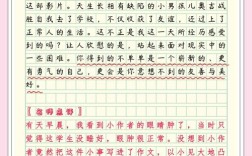 这部影片。天生长相有缺陷的小男孩儿奥吉战
胜自我去了学校，不仅收获了友谊，还过上了
正常人的生活。这不正是我这一天所经历感受
到的吗？让人欣慰的是，站起来面对现实中的
一些困难，你得到的不单单是一个崭新的、更
有勇气的自己，更会是你意想不到的友善与美
好。
【名师点评】
有天早晨，我看到小作者的眼睛肿了，当时只
觉得这学生没睡好。原来眼肿很正常。没想到小作
者竟然把这件小事写进了作文，以小见大地凸